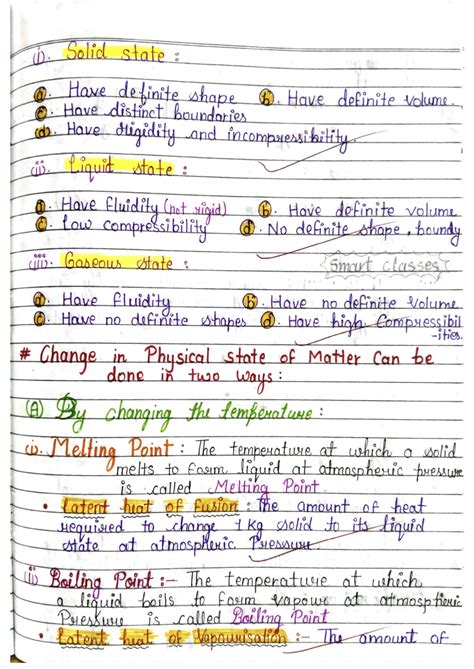 (i). Solid state :
(a). Have definite shape (b). Have definite volume.
(c). Have distinct boundaries
(d). Have rigidity and incompressibility.
(ii). Liquid state :
(a). Have fluidity (not rigid) (b). Have definite volume
(c). Low compressibility (d). No definite shape, boundy
(iii). Gaseous state : Smart classes
(a). Have fluidity (b). Have no definite volume
(c). Have no definite shapes (d). Have high Compressibil
-ities.
# Change in Physical state of Matter Can be
done in two ways :
(A) By changing the temperature :
(i). Melting Point : The temperature at which a solid
melts to form liquid at atmospheric pressure
is called Melting Point.
• Latent heat of fusion : The amount of heat
required to change 1 kg solid to its liquid
state at atmospheric Pressure.
(ii) Boiling Point :- The temperature at which
a liquid boils to form vapour at atmospheric
Pressure is called Boiling Point
• Latent heat of Vapourisation :- The amount of